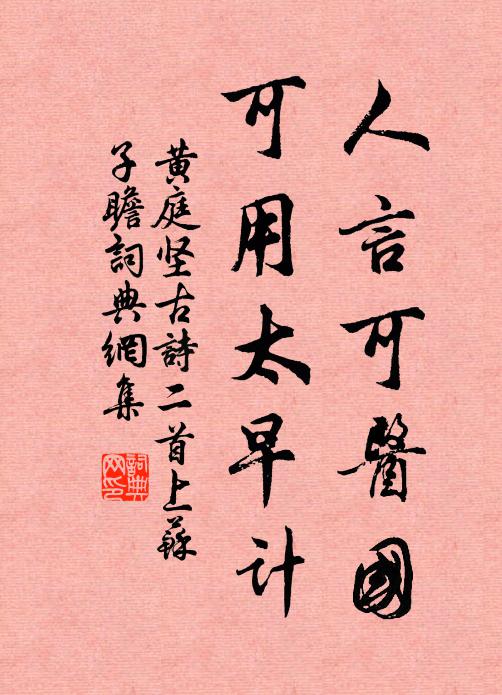 人言可醫國
可用太早计
黄庭坚古詩二首上蘇
子瞻詞典網集
詞典網印